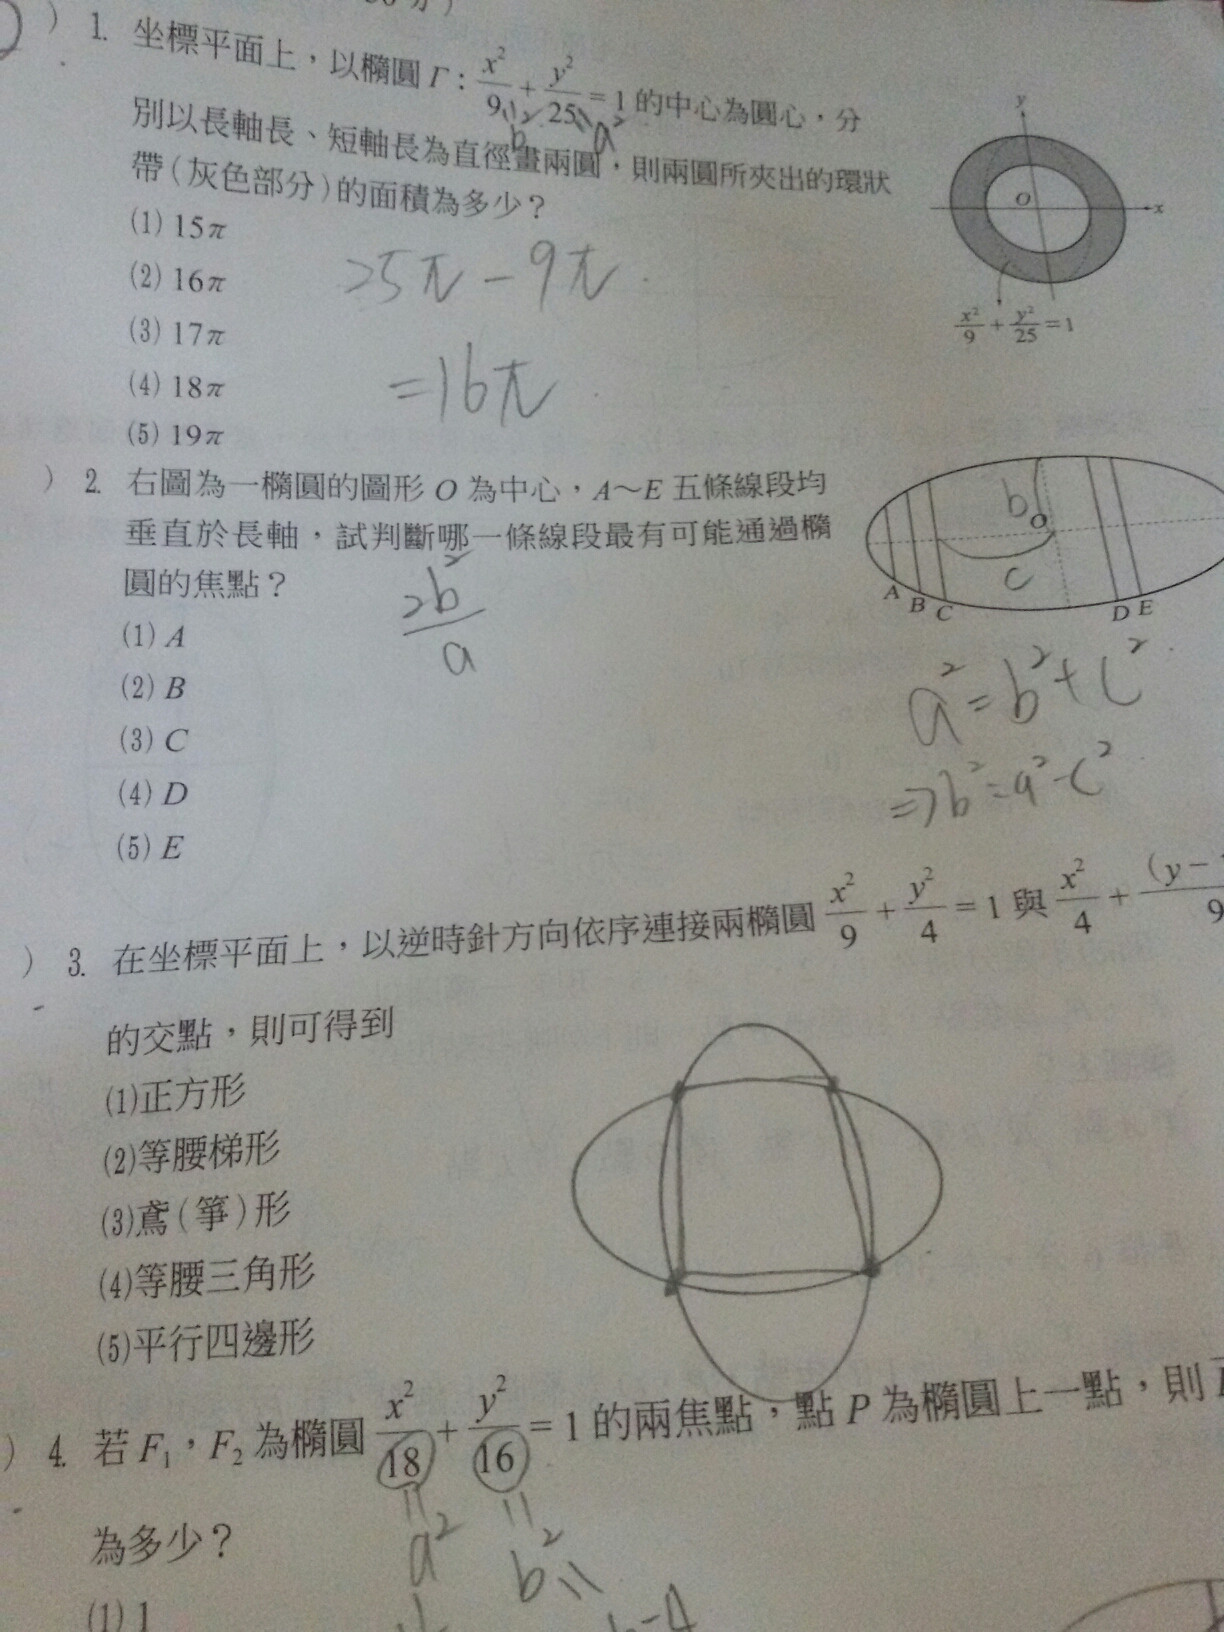 ) 1. 坐標平面上，以橢圓 Γ : x²/9 + y²/25 = 1 的中心為圓心，分
b² a²
別以長軸長、短軸長為直徑畫兩圓，則兩圓所夾出的環狀
帶(灰色部分)的面積為多少？
(1) 15π
(2) 16π
(3) 17π
(4) 18π
(5) 19π
25π - 9π
= 16π
y
O
x
x²/9 + y²/25 = 1
) 2. 右圖為一橢圓的圖形 O 為中心，A～E 五條線段均
垂直於長軸，試判斷哪一條線段最有可能通過橢
圓的焦點？
(1) A
(2) B
(3) C
(4) D
(5) E
2b²/a
b
O
c
A B C D E
a² = b² + c²
⇒ b² = a² - c²
) 3. 在坐標平面上，以逆時針方向依序連接兩橢圓 x²/9 + y²/4 = 1 與 x²/4 + (y-
9
的交點，則可得到
(1)正方形
(2)等腰梯形
(3)鳶(箏)形
(4)等腰三角形
(5)平行四邊形
) 4. 若 F₁，F₂ 為橢圓 x²/18 + y²/16 = 1 的兩焦點，點 P 為橢圓上一點，則
= a² = b²
為多少？
(1) 1